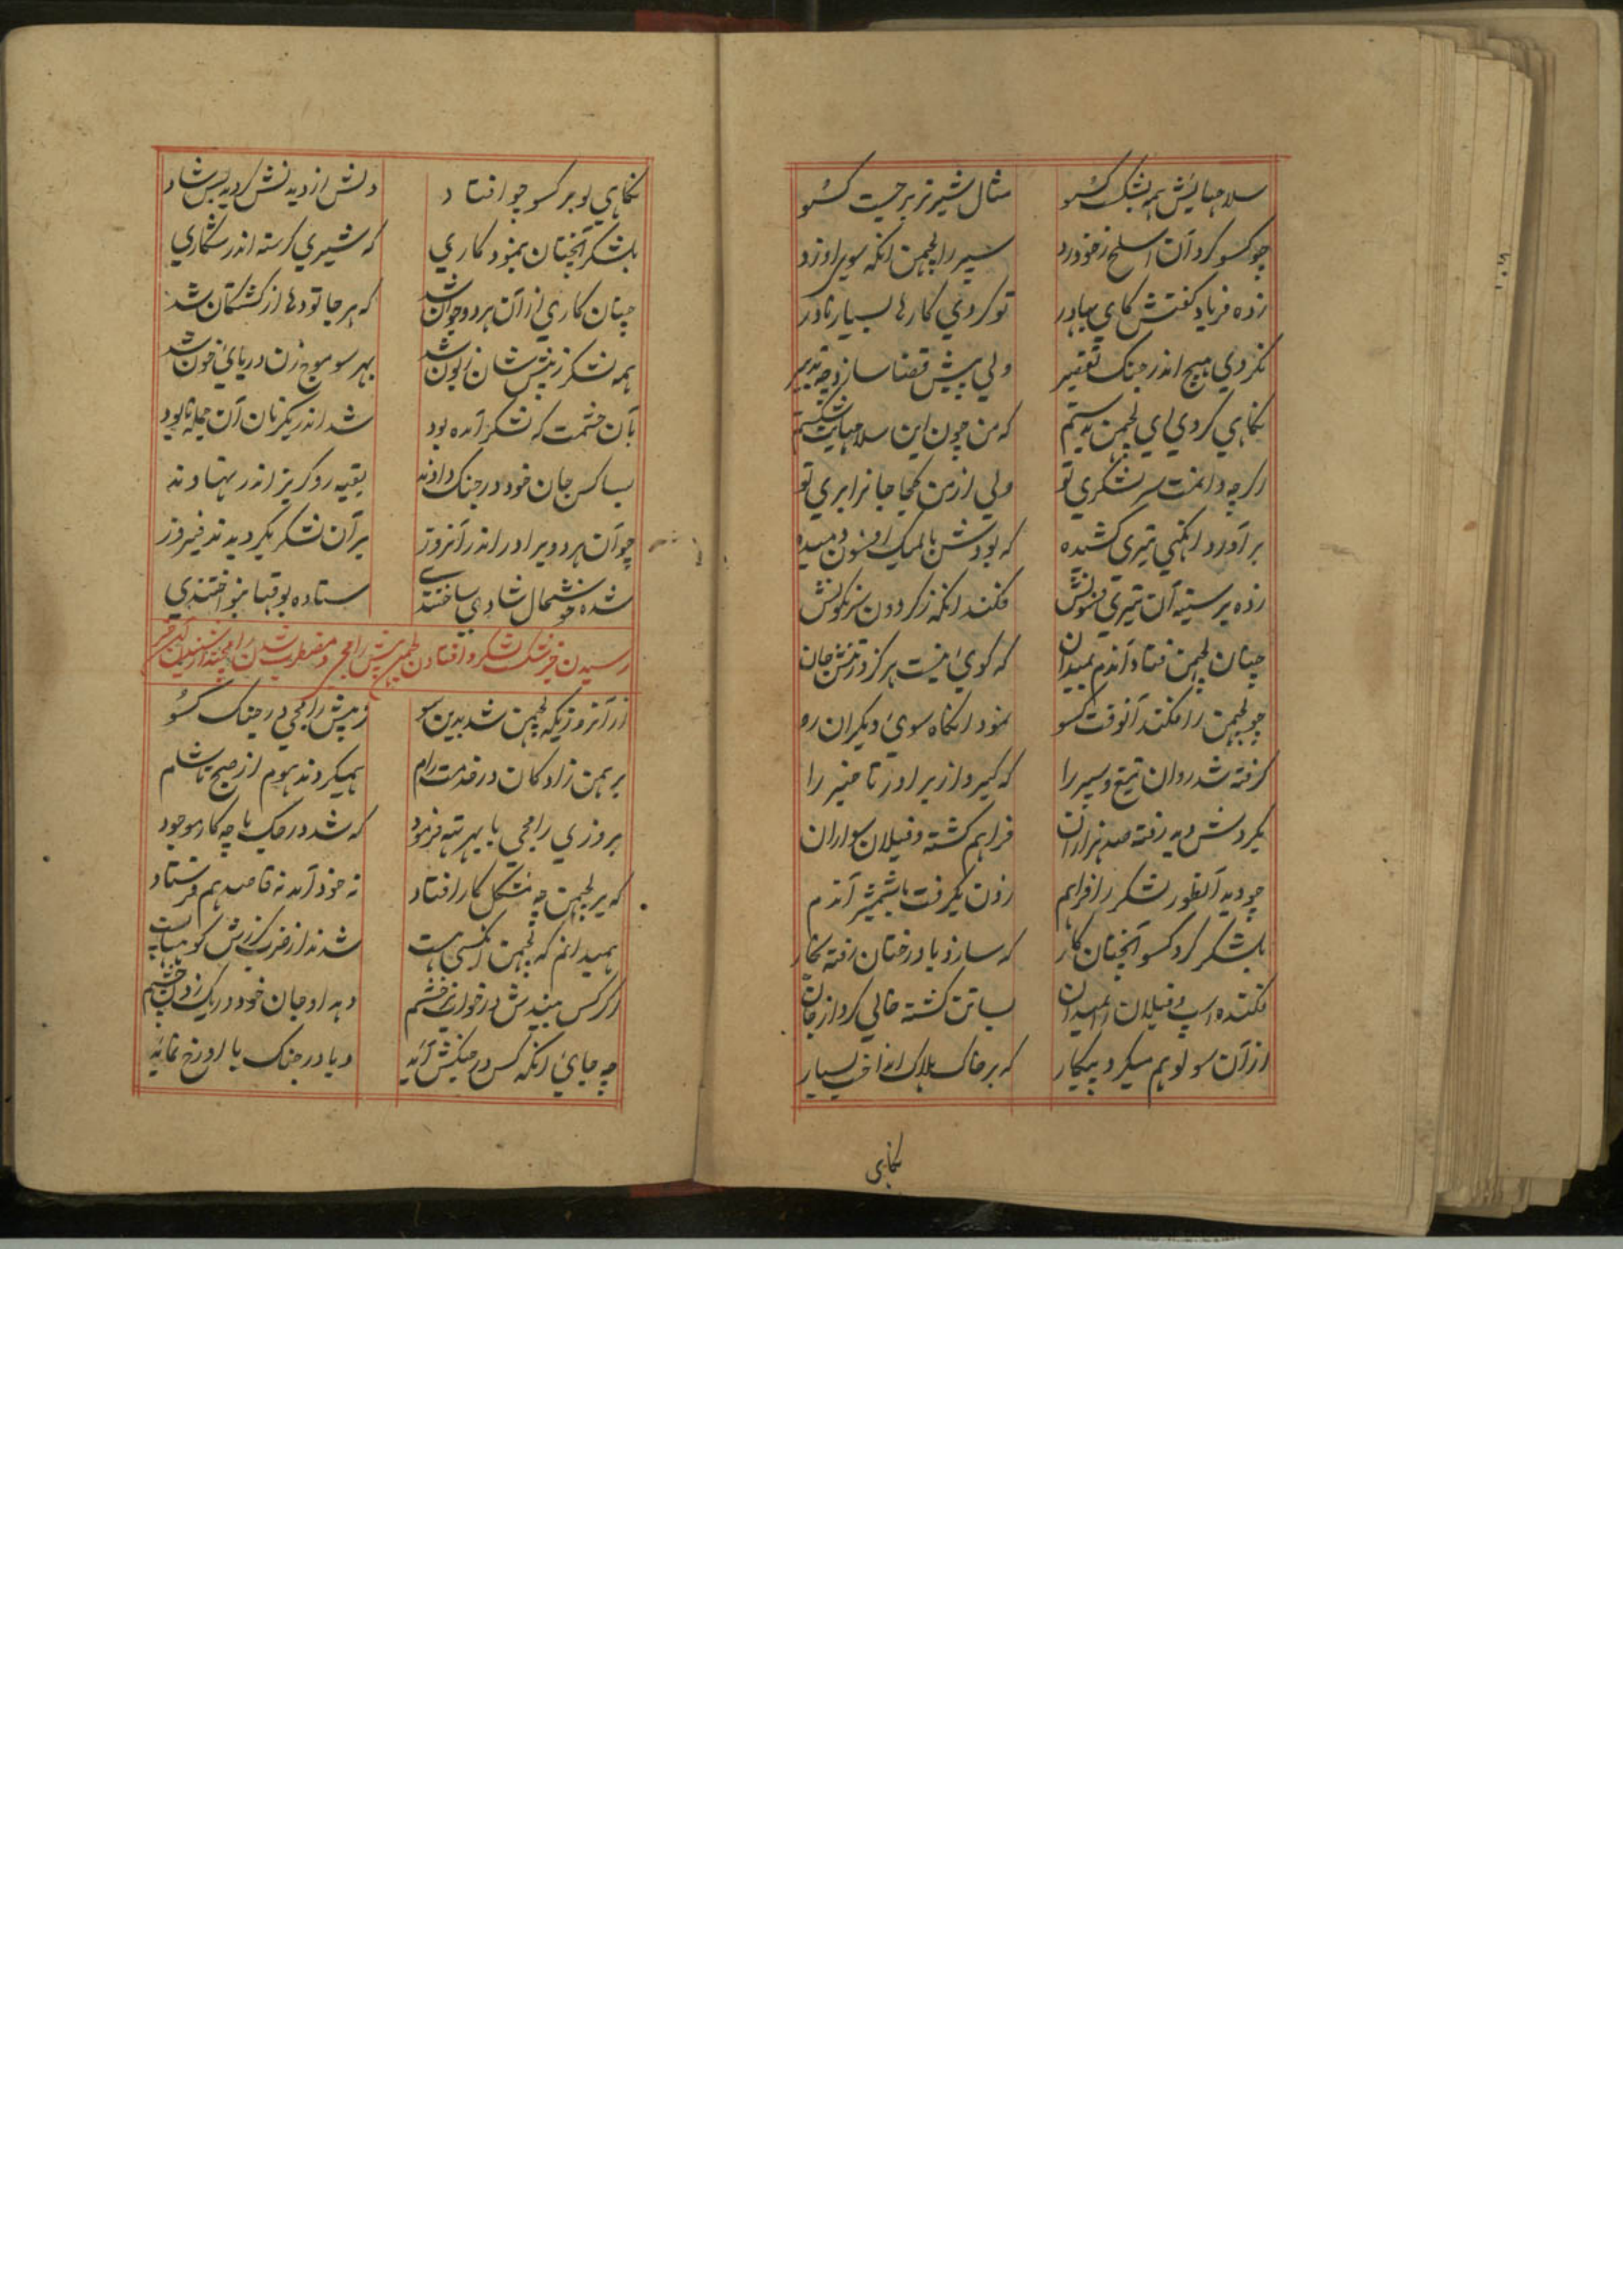 سلاحهایش همه بشکست کسو مثال شیر نر برجست کسو
چو کسو کرد آن اسلح ز خود رد سپر را لچمن انکه سویی او زد
زده فریاد کفتش کای بهادر تو کردی کارها بسیار نادر
نکردی هیچ اندر جنک تقصیر ولی پیش قضا سازد چه تدبیر
نکاهی کردی ای لچمن بدستم که من چون این سلاحهایت شکستم
اکرچه دانمت سر لشکری تو ولی از من کجا جانرا بری تو
برآورد انکهی تیری کشیده که بودش بالمیک افسون دمیده
زده بر سینه آن تیری فسونش فکند انکه ز کردون سرنکونش
چنان لچمن فتاد آندم بمیدان که کوئی نیست هرکز در تنش جان
چو لچمن را فکند آنوقت کسو نمود انکاه سوی دیکران رو
کرفته شد روان تیغ و سپر را که کیرد از برادر تا خبر را
بکردش دید رفته صد هزاران فراهم کشته و فیلان سواران
چو دید آنطور لشکر را فراهم زدن بکرفت با شمشیر آندم
بلشکر کرد کسو آنچنان کار که سازد با درختان رفته نجار
فکنده اسپ و فیلان را بمیدان بسا تن کشته خالی کرد از جان
از آن سو لو هم میکرد پیکار که بر خاک هلاک انداخت بسیار
نکاهی
نکاهی لو بر کسو چو افتاد دلش از دیدنش کردید بس شاد
بلشکر آنچنان بنمود کاری که شیری کرسنه اندر شکاری
چنان کاری از آن هر دو جوان شد که هر جا تودها از کشتکان شد
همه لشکر ز پیش شان زبون شد بهر سو موج زن دریای خون شد
بآن حشمت که لشکر آمده بود شد اندر یکزمان آن جمله نابود
بسا کس جان خود در جنک دادند بقیه رو کریز اندر نهادند
چو آن هر دو برادر اندر آنروز بر آن لشکر بکردیدند فیروز
شده خوشحال شادی ساختندی ستاده بوقها بنواختندی
رسیدن خبر شکست لشکر و افتادن لچمن پیش رامچندر و مضطرب شدن رامچندر از شنیدن آن خبر
از آنروزیکه لچمن شد بدین سو ز پیش رامجی در جنک کسو
برهمن زادکان در خدمت رام همیکردند هوم از صبح تا شام
بروزی رامجی با بهرته فرمود که شد در جک ما چه کار موجود
که بر لچمن چه مشکل کار افتاد نه خود آمد نه قاصد هم فرستاد
همیدانم که لچمن آنکسی هست شدند از ضرب کرزش کوهها پست
اکر کس بیندش در خواب با خشم دهد او جان خود در یک زدن چشم
چه جای آنکه کس در جنکش آید و یا در جنک با او رخ نماید